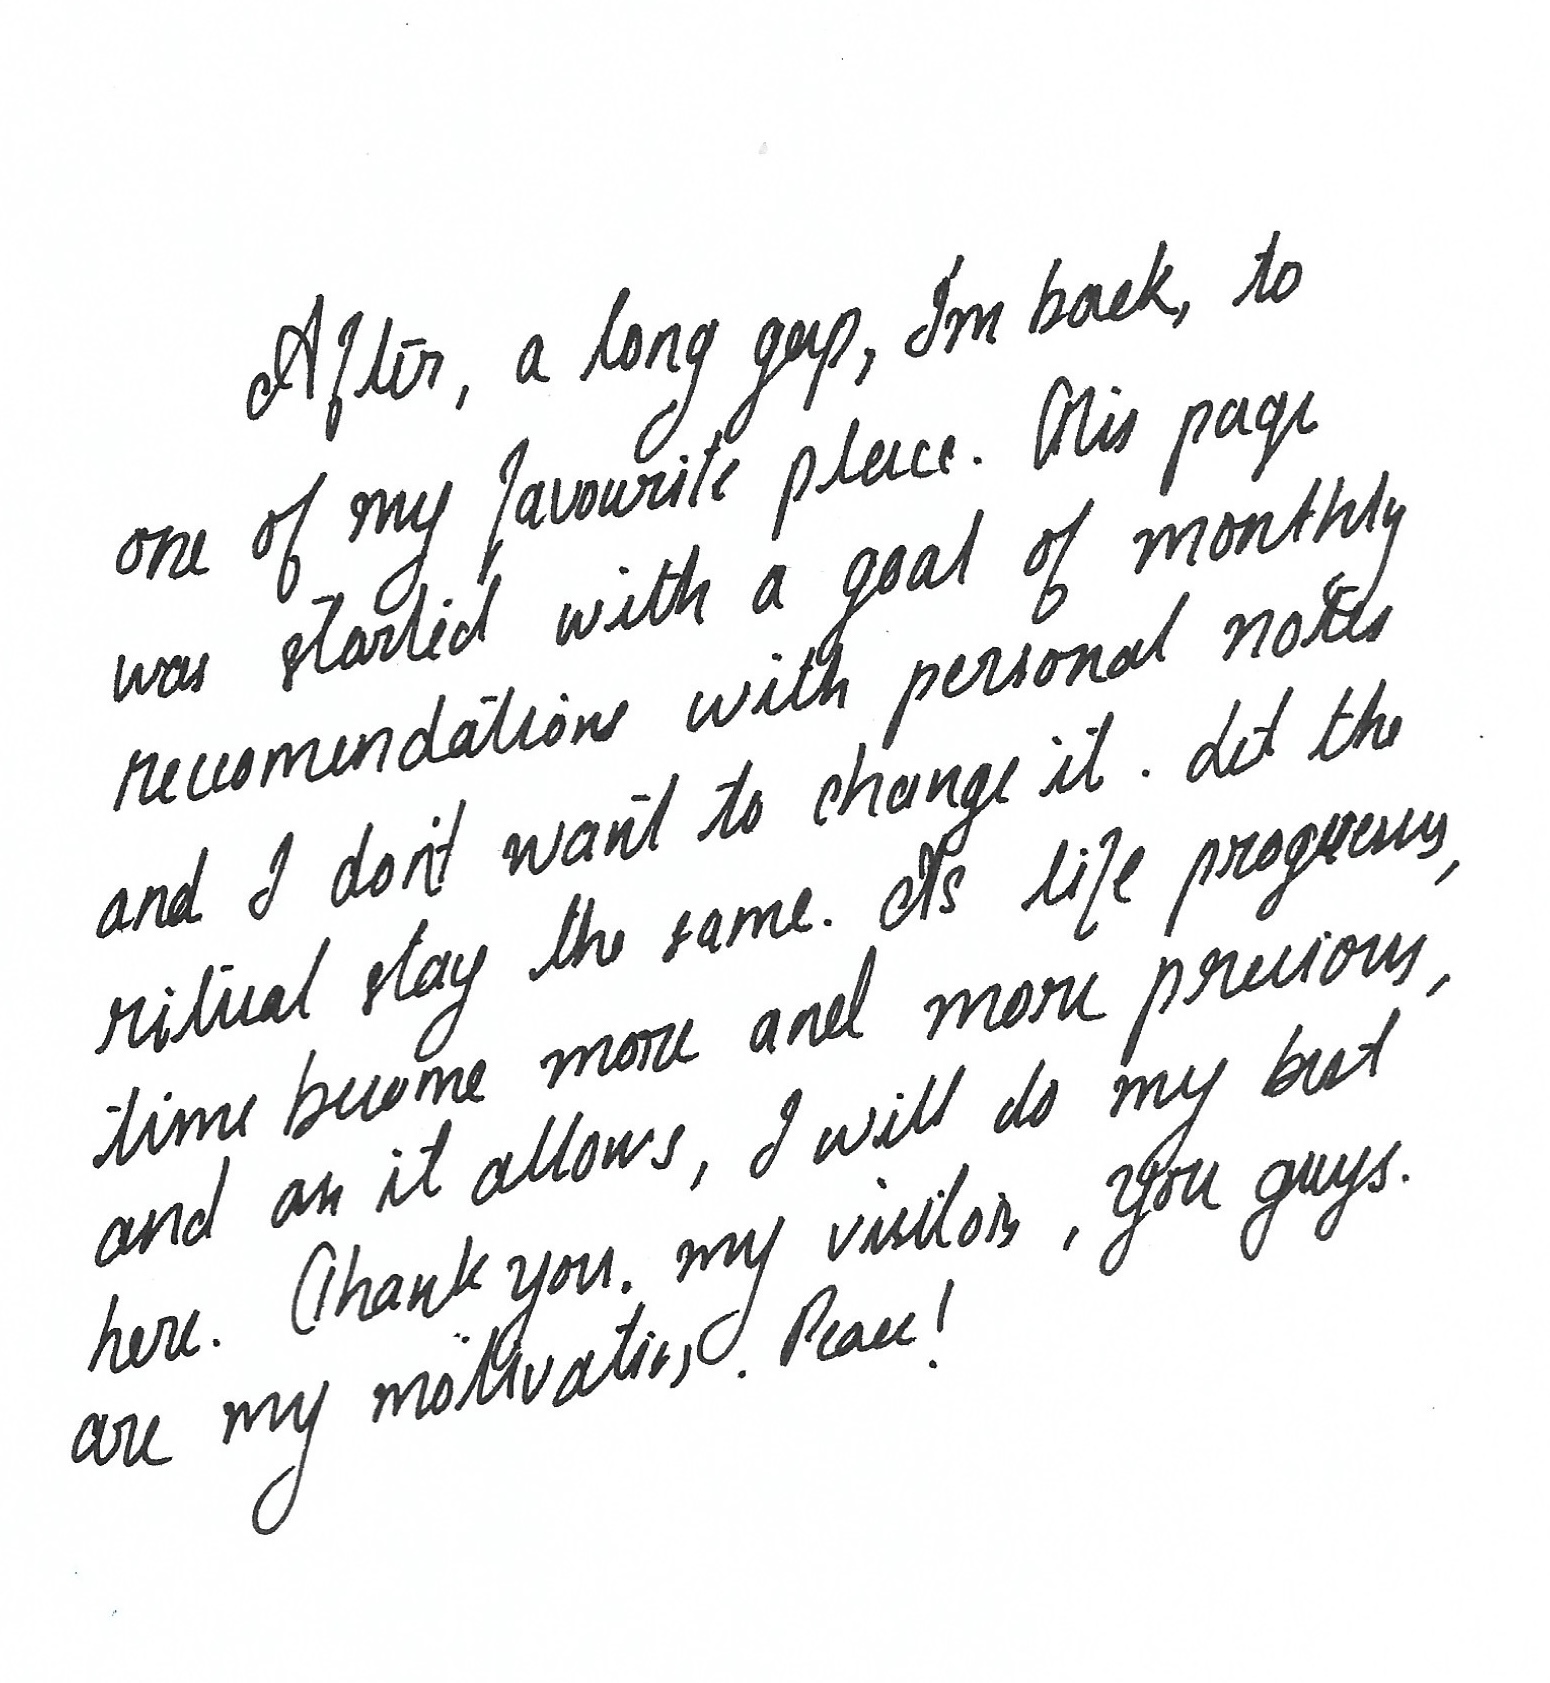 After, a long gap, I'm back, to
one of my favourite place. This page
was started with a goal of monthly
reccomendations with personal notes
and I don't want to change it. Let the
ritual stay the same. As life progresses,
time become more and more precious,
and as it allows, I will do my best
here. Thank you. my visitors, you guys.
are my motivation. Peace!